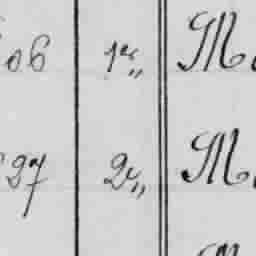 06 1e„ M
97 2e„ M